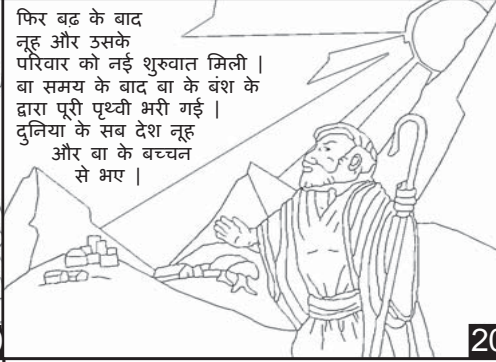 फिर बढ़ के बाद
नूह और उसके
परिवार को नई शुरुवात मिली |
बा समय के बाद बा के बंश के
द्वारा पूरी पृथ्वी भरी गई |
दुनिया के सब देश नूह
और बा के बच्चन
से भए |
20